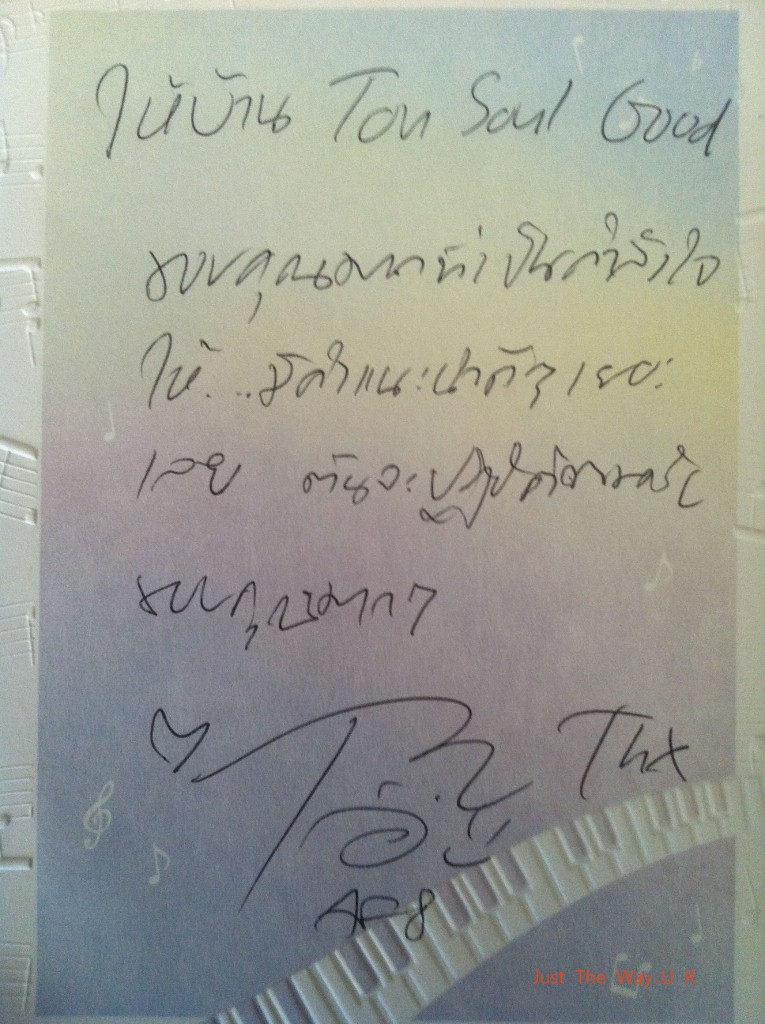 ให้บ้าน Ton Soul Good
ขอบคุณมากที่เป็นกำลังใจ
ให้...มีคำแนะนำดีๆ เยอะ
เลย ต้นจะปฏิบัติตามครับ
ขอบคุณมากๆ
Thx
AF8
Just The Way U R